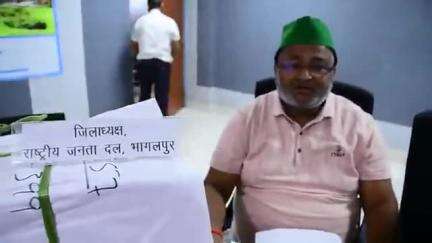 जिलाध्यक्ष,
राष्ट्रीय जनता दल, भागलपुर